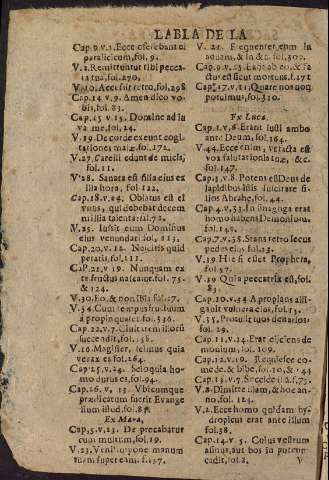 TABLA DE LA
Cap.9.v.1. Ecce offerebant ei
paraliticum, fol. 9.
V.2. Remittuntur tibi pecca
ta tua, fol. 270.
V.10. Accessit retro, fol. 298
Cap. 14 v. 9. Amen dico vo
bis, fol. 83.
Cap. 15 v. 15. Domine ad iu
va me, fol. 24.
V.19. De corde exeunt cogi
tationes malæ, fol. 172.
V.27. Catelli edunt de micis,
fol. 11.
V.28. Sanata est filia eius ex
illa hora, fol. 122.
Cap. 18. v. 24. Oblatus est ei
unus, qui debebat decem
millia talenta: fol. 72.
V. 25. Iussit eum Dominus
eius venundari fol. 113.
Cap. 20. v. 22. Nescitis quid
petatis, fol. 111.
Cap. 21. v 19. Nunquam ex
te fructus nascatur, fol. 75.
& 124.
V. 30. Eo, & non ibit fol. 17.
V. 34. Cum tempus fructuum
appropinquasset fo. 336.
Cap. 22. v. 7. Civitatem illorū
succendit, fol. 136.
V. 16. Magister, scimus quia
verax es fol. 264.
Cap 25. v. 24. Scio quia ho
mo durus es, fol. 94.
Cap. 26. v. 13. Vbicumque
prædicatum fuerit Evange
lium istud, fol. 87.
Ex Marco,
Cap. 5. v. 23. De precabatur
eum multum, fol. 19.
V. 23. Veni, impone manum
tuam super eam, f. 157.
V. 24. Sequentes eum
fol. 300.
Cap. 9. v. 25.
ctus est sicut mortuus, f. 171
Cap. 17. v. 11. Quare nos noq
potuimus, fol. 310.
Ex Luca.
Cap. 1. v. 6. Erant iusti ambo
ante Deum, fol. 164.
V. 44. Ecce enim, ut facta est
vox salutationis tuæ, & c.
fol. 147.
Cap. 3. v. 8. Potens est Deus de
lapidibus istis suscitare fi-
lios Abrahe, fol. 44.
Cap. 4. v. 33. In sinagoga erat
homo habens Demonium,
fol. 149.
Cap. 7. v. 38. Stans retro secus
pedes eius, fol. 23.
V. 39 Hic si esset Propheta,
fol 37.
V. 39 Quia peccatrix est, fol.
83.
Cap. 10. v. 34 Appropians alli-
gavit vulnera eius, fol. 13.
V. 35. Protulit duos denarios,
fol. 29.
Cap. 11. v. 14. Erat eijciens de
monium, fol. 109.
Cap. 12. v. 19. Requiesce co-
mede, & bibe, fol. 10, & 144
Cap 13. v. 7. Succide illā, f. 75.
V. 8 Dimitte illam, & hoc an-
no, fol. 124.
V. 2. Ecce homo quidam hy-
dropicus erat ante illum
fol. 38.
Cap. 14. v. 5. Cuius vestrum
asinus, aut bos in puteum
cadit, fol. 2. V